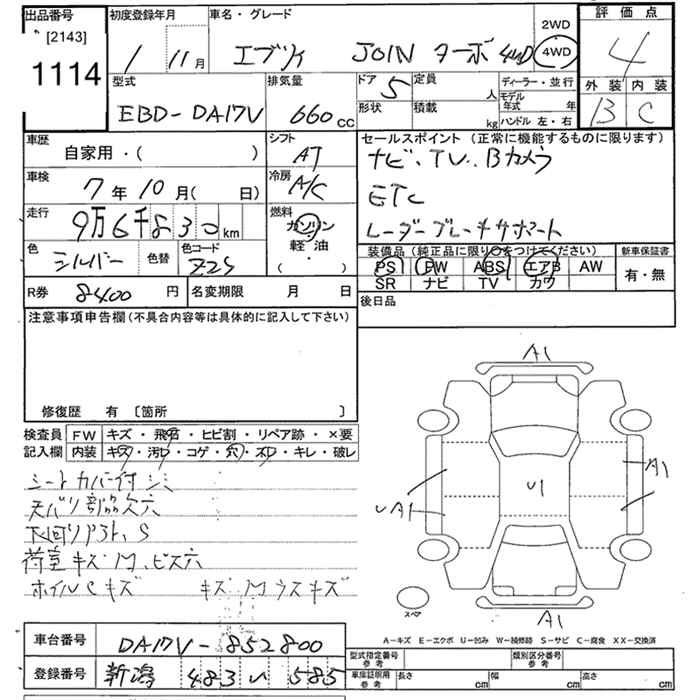 出品番号
[2143]
1114
初度登録年月
1 11月
車名・グレード
エブリイ JOIN ターボ 4WD
2WD
4WD
評価点
4
外装 内装
B C
型式
EBD-DA17V
排気量
660cc
ドア 5
形状
定員
人
積載
kg
ディーラー・並行
モデル
年式 年
ハンドル 左・右
車歴
自家用・( )
シフト
AT
セールスポイント (正常に機能するものに限ります)
ナビ・TV・Bカメラ
ETC
レーダーブレーキサポート
車検
7年10月( 日)
冷房
A/C
走行
9万6千830km
燃料
ガソリン
軽油
( ・ )
色
シルバー
色替
色コード
Z2S
装備品 (純正品に限り○をつけてください)
PS PW ABS エアB AW
SR ナビ TV カワ
新車保証書
有・無
R券 8400 円
名変期限 月 日
後日品
注意事項申告欄(不具合内容等は具体的に記入して下さい)
修復歴 有 〔箇所 〕
検査員 FW キズ・飛石・ヒビ割・リペア跡・×要
記入欄 内装 キズ・汚レ・コゲ・穴・スレ・キレ・破レ
シートカバー付シミ
天バリ部品欠穴
下回りアト、S
荷室キズM、ビス穴
ホイルCキズ キズM ウスキズ
A1
A1
U1
UA1
A1
スペア
A-キズ E-エクボ U-凹み W-補修跡 S-サビ C-腐食 XX-交換済
車台番号 DA17V-852800
登録番号 新潟 483 い 585
型式指定番号
参考
類別区分番号
参考
車体証明用
参考
長さ cm 幅 cm 高さ cm